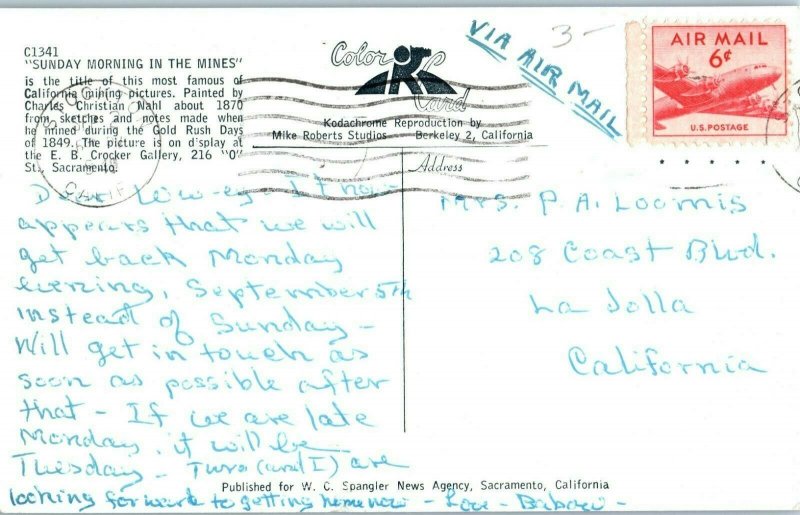 C1341
"SUNDAY MORNING IN THE MINES"
is the title of this most famous of
California mining pictures. Painted by
Charles Christian Nahl about 1870
from sketches and notes made when
he mined during the Gold Rush Days
of 1849. The picture is on display at
the E. B. Crocker Gallery, 216 "O"
St., Sacramento.
Color Card
Kodachrome Reproduction by
Mike Roberts Studios Berkeley 2, California
VIA AIR MAIL
3-
AIR MAIL
6¢
U.S. POSTAGE
CALIF
Address
Mrs. P. A. Loomis
208 Coast Blvd.
La Jolla
California
Dear Low-ey - It now
appears that we will
get back Monday
evening, September 5th
instead of Sunday -
Will get in touch as
soon as possible after
that - If we are late
Monday, it will be
Tuesday - (and I) are
looking forward to getting home now - Love -
Published for W. C. Spangler News Agency, Sacramento, California